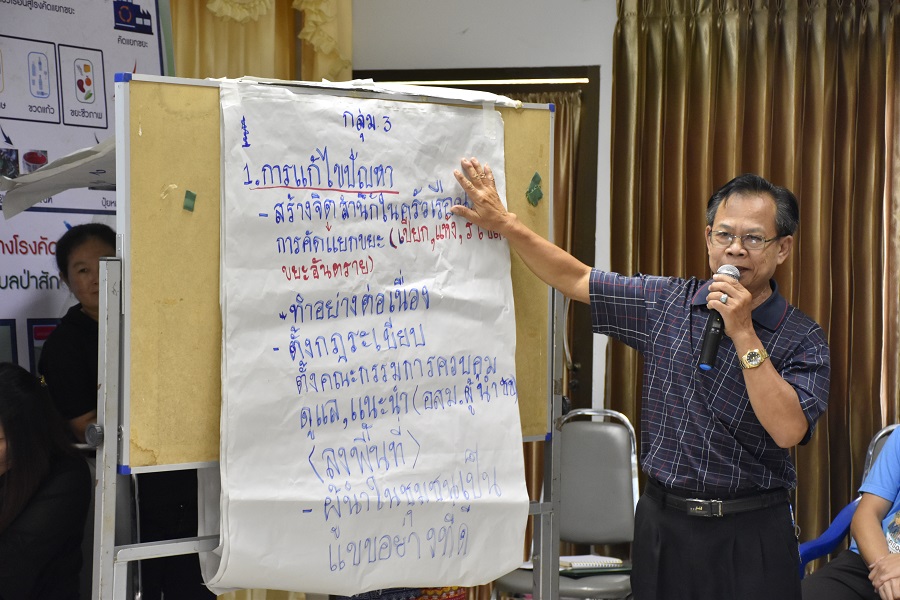 คัดแยกขยะ
ขวดแก้ว
ขยะชีวภาพ
กลุ่ม 3
1.การแก้ไขปัญหา
- สร้างจิตสำนึกในครัวเรือน
การคัดแยกขยะ (เปียก,แห้ง,
ขยะอันตราย)
- ทำอย่างต่อเนื่อง
- ตั้งกฎระเบียบ
ตั้งคณะกรรมการควบคุม
ดูแล,แนะนำ (อสม.ผู้นำ
(ลงพื้นที่)
- ผู้นำในชุมชนเป็น
แบบอย่างที่ดี